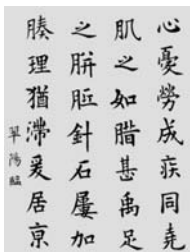 心憂勞成疾同堯
肌之如腊甚禹足
之胼胝針石屢加
腠理猶滯爰居京
翠陽臨